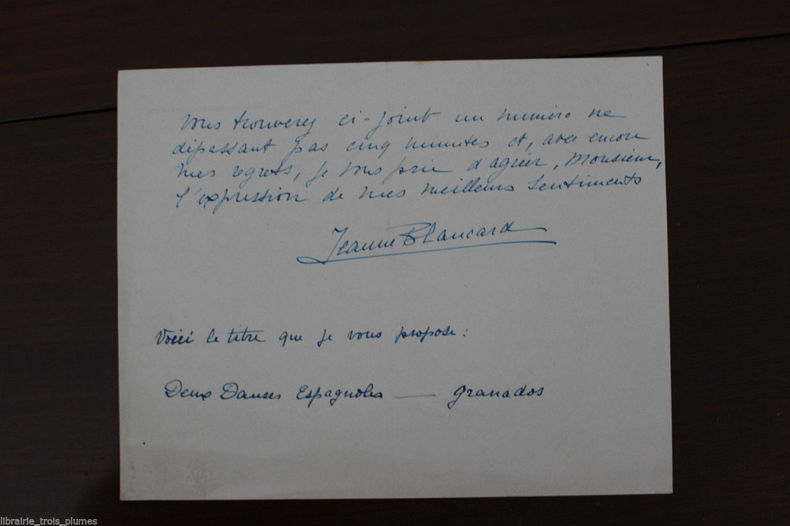 Vous trouverez ci-joint un numéro ne
dépassant pas cinq minutes et, avec encore
mes regrets, je vous prie d'agréer, Monsieur,
l'expression de mes meilleurs sentiments
Jeanne Blancard
Voici le titre que je vous propose :
Deux Danses Espagnoles — Granados
librairie_trois_plumes